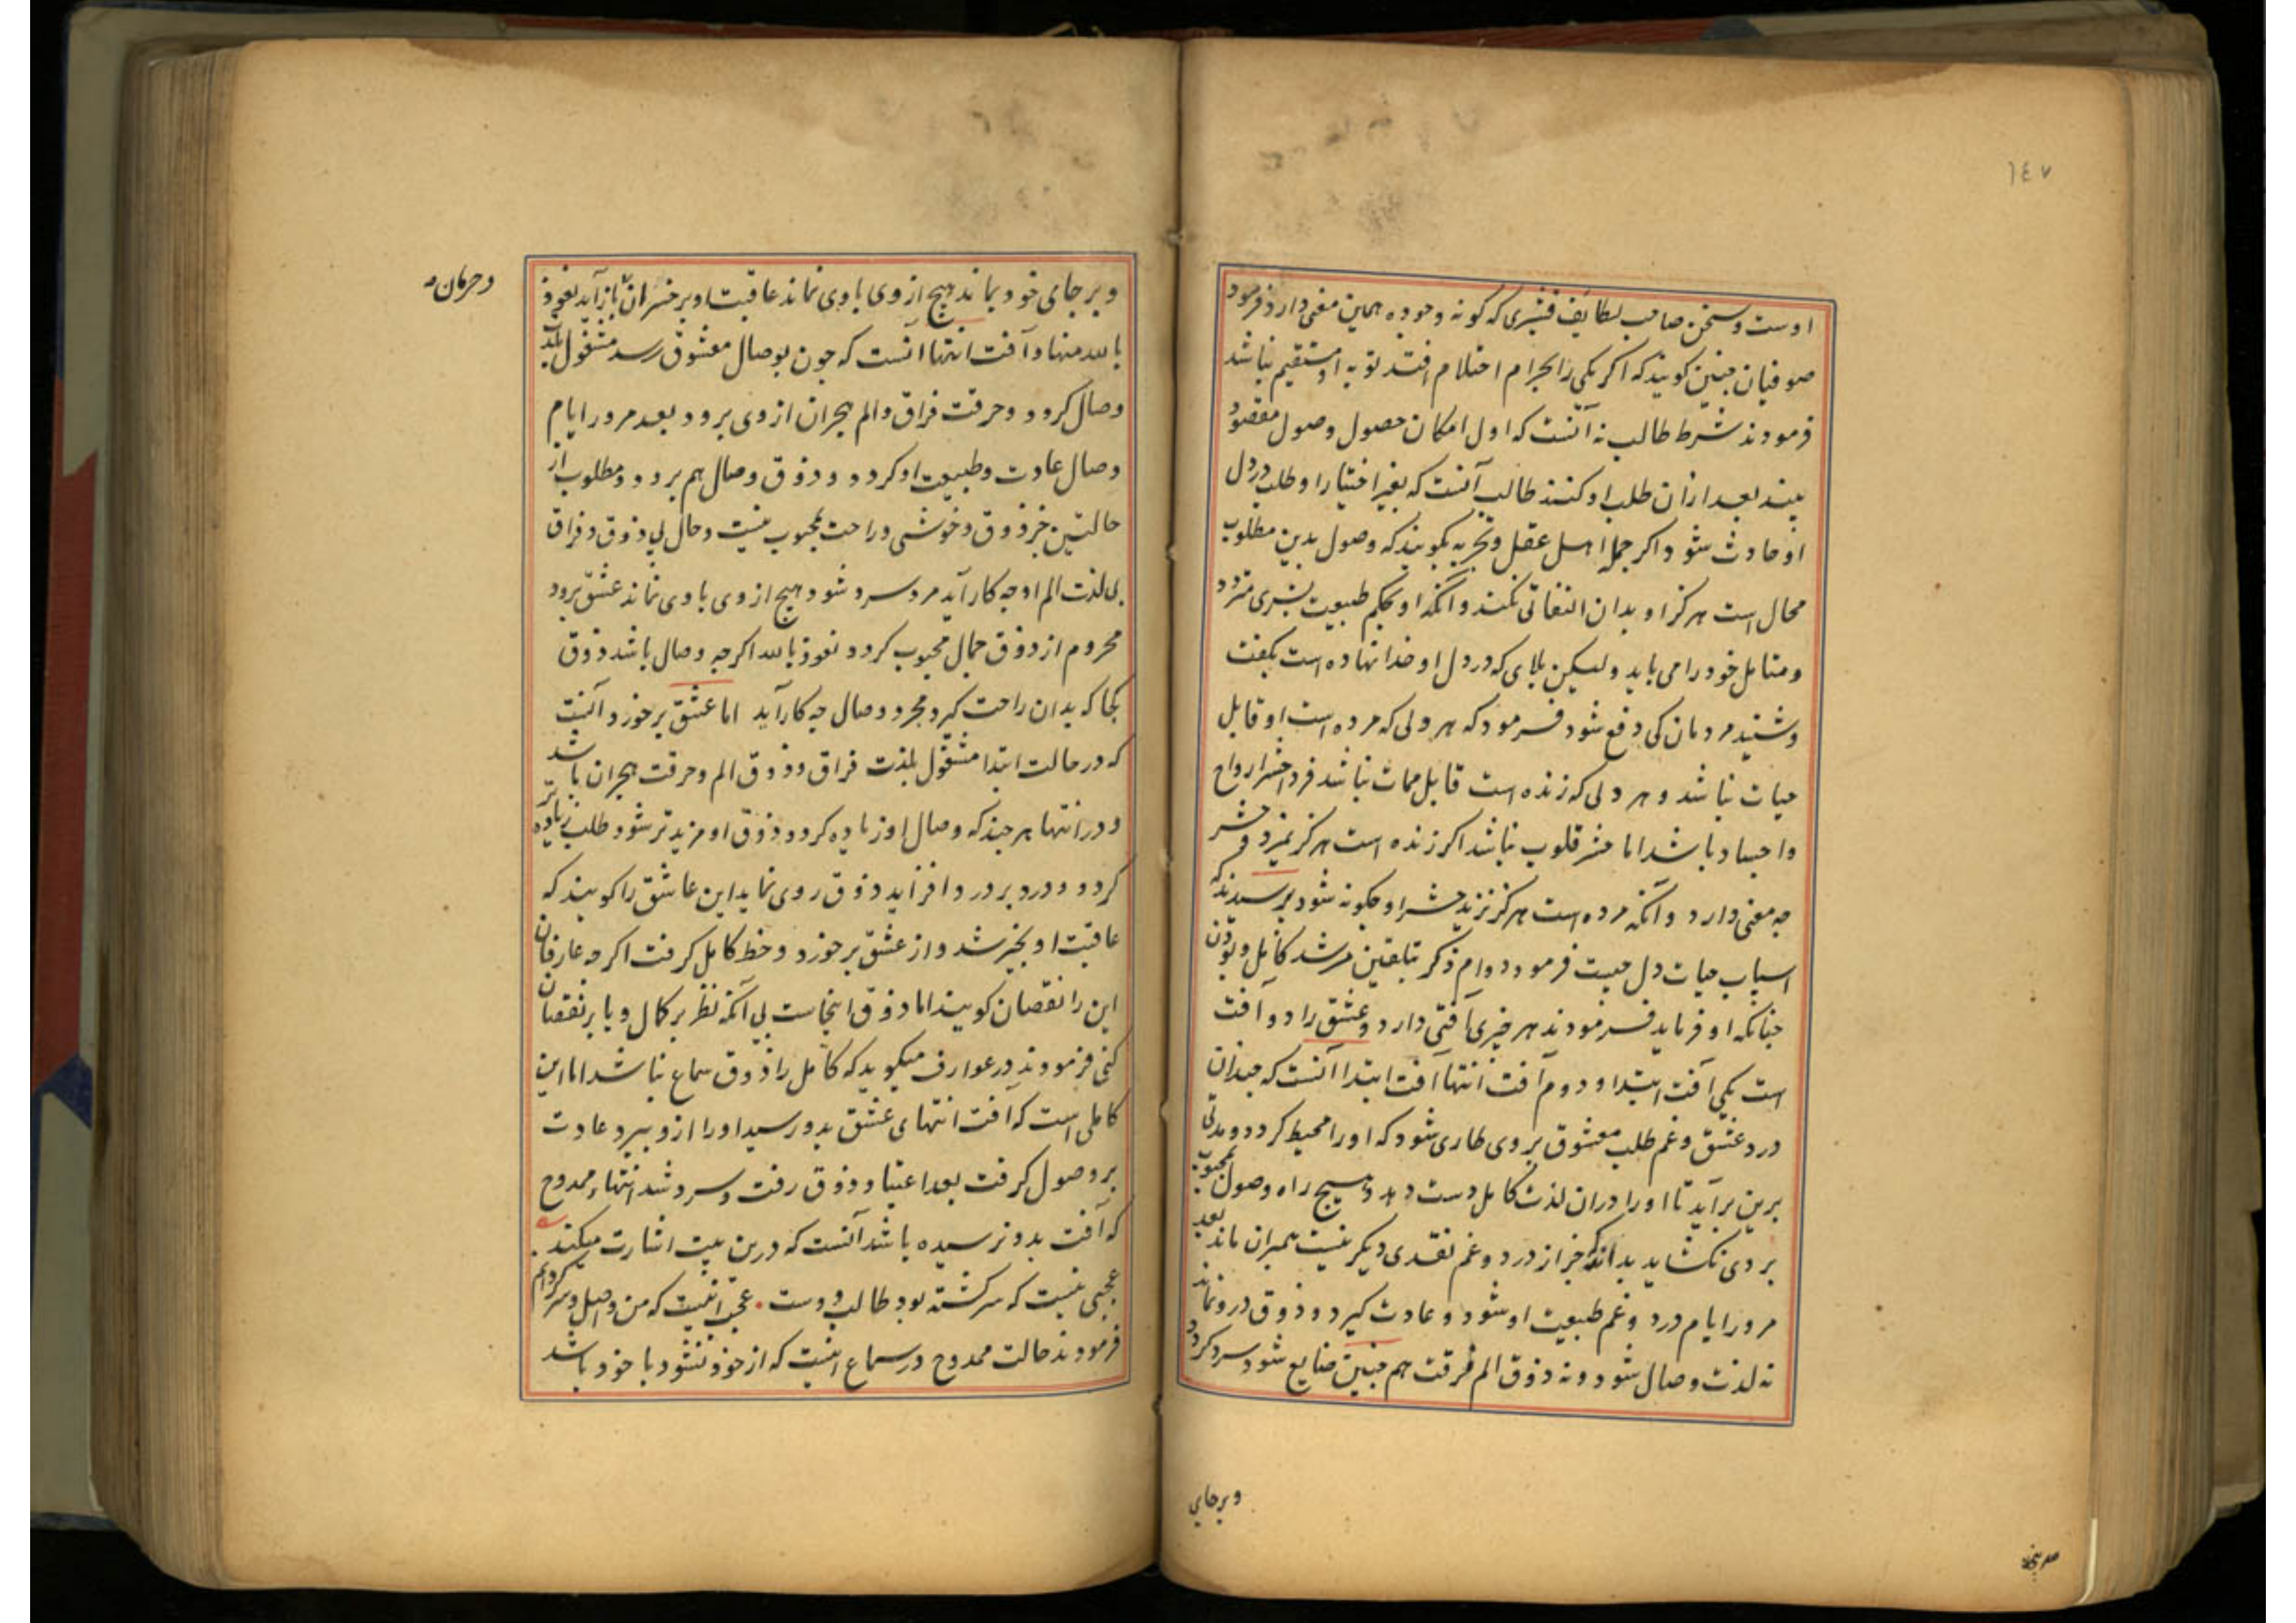 ١٤٧
اوست و سخن صاحب لطایف قشیری که کونه وجوده همین معنی دارد فرمود
صوفیان چنین کویند که اکر یکی را بحرام احتلام افتد توبه او مستقیم نباشد
فرمودند شرط طالب نه آنست که اول امکان حصول وصول مقصود
بیند بعد ازان طلب او کنند طالب آنست که بغیر اختیار او طلب در دل
او حادث شود اکر جمله اهل عقل و تجربه بکویند که وصول بدین مطلوب
محال است هرکز او بدان التفاتی نکند و آنکه او بحکم طبیعت بشری متردد
و متامل خود را می یابد ولیکن بلای که در دل او خدا نهاده است بکفت
و شنید مردمان کی دفع شود فرمود که هر دلی که مرده است او قابل
حیات نباشد و هر دلی که زنده است قابل ممات نباشد فردا حشر ارواح
و اجساد باشد اما حشر قلوب نباشد اکر زنده است هرکز نمیرد حشر
چه معنی دارد و آنکه مرده است هرکز نزید حشر او چکونه شود پرسیدند که
اسباب حیات دل چیست فرمود دوام ذکر بتلقین مرشد کامل و بودن
چنانکه او فرماید فرمودند هر چیزی آفتی دارد و عشق را دو آفت
است یکی آفت ابتدا و دوم آفت انتها آفت ابتدا آنست که چندان
درد عشق و غم طلب معشوق بروی طاری شود که او را محیط کردد و مدتی
برین برآید تا او را دران لذت کامل دست دهد و هیچ راه وصول محبوب
بروی نکشاید بداند که جز از درد و غم نقدی دیکر نیست همبران ماند بعد
مرور ایام درد و غم طبیعت او شود و عادت کیرد و ذوق درو نماند
نه لذت وصال شود و نه ذوق الم فرقت هم چنین ضایع شود سرد کردد
و برجای
و برجای خود بماند هیچ از وی با وی نماند عاقبت او بر خسران باز آید نعوذ
و حرمان
بالله منها و آفت انتها آنست که چون بوصال معشوق رسد مشغول بلذت
وصال کردد و حرقت فراق و الم هجران از وی برود بعد مرور ایام
وصال عادت و طبیعت او کردد و ذوق وصال هم برود و مطلوب از
حالتین جز ذوق و خوشی و راحت محبوب نیست وحال بی ذوق و فراق
بی لذت الم او چه کار آید مرد سرد شود هیچ از وی با وی نماند عشق برود
محروم از ذوق جمال محبوب کردد نعوذ بالله اکرچه وصال باشد ذوق
کجا که بدان راحت کیرد مجرد وصال چه کار آید اما عشق برخورد آنست
که در حالت ابتدا مشغول بلذت فراق و ذوق الم و حرقت هجران باشد
و در انتها هر چند که وصال او زیاده کردد ذوق او مزید تر شود طلب زیاده تر
کردد و درد بر درد افزاید ذوق روی نماید این عاشق را کویند که
عاقبت او بخیر شد و از عشق برخورد و حظ کامل کرفت اکرچه عارفان
این را نقصان کویند اما ذوق اینجاست بی آنکه نظر بر کمال و یا بر نقصان
کنی فرمودند در عوارف میکوید که کامل را ذوق سماع نباشد اما این
کاملی است که آفت انتهای عشق بدو رسید او را ازو ببرد عادت
بر وصول کرفت بعد اعتیاد ذوق رفت و سرد شد انتهاء ممدوح
که آفت بدو نرسیده باشد آنست که درین بیت اشارت میکند
عجبی نیست که سرکشته بود طالب دوست عجب اینست که من واصل و سرکردانم
فرمودند حالت ممدوح در سماع اینست که از خود نشود با خود باشد